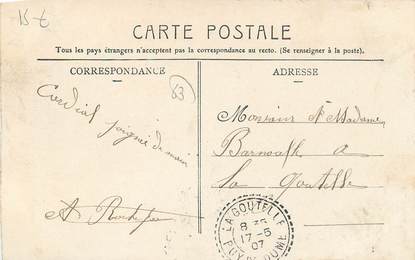 15 €
CARTE POSTALE
Tous les pays étrangers n'acceptent pas la correspondance au recto. (Se renseigner à la poste).
CORRESPONDANCE
ADRESSE
63
Cordial
poignée de main
A
Monsieur et Madame
Barnoalh a
La Goutelle
LA GOUTELLE
8
17-5
07
PUY-DE-DOME